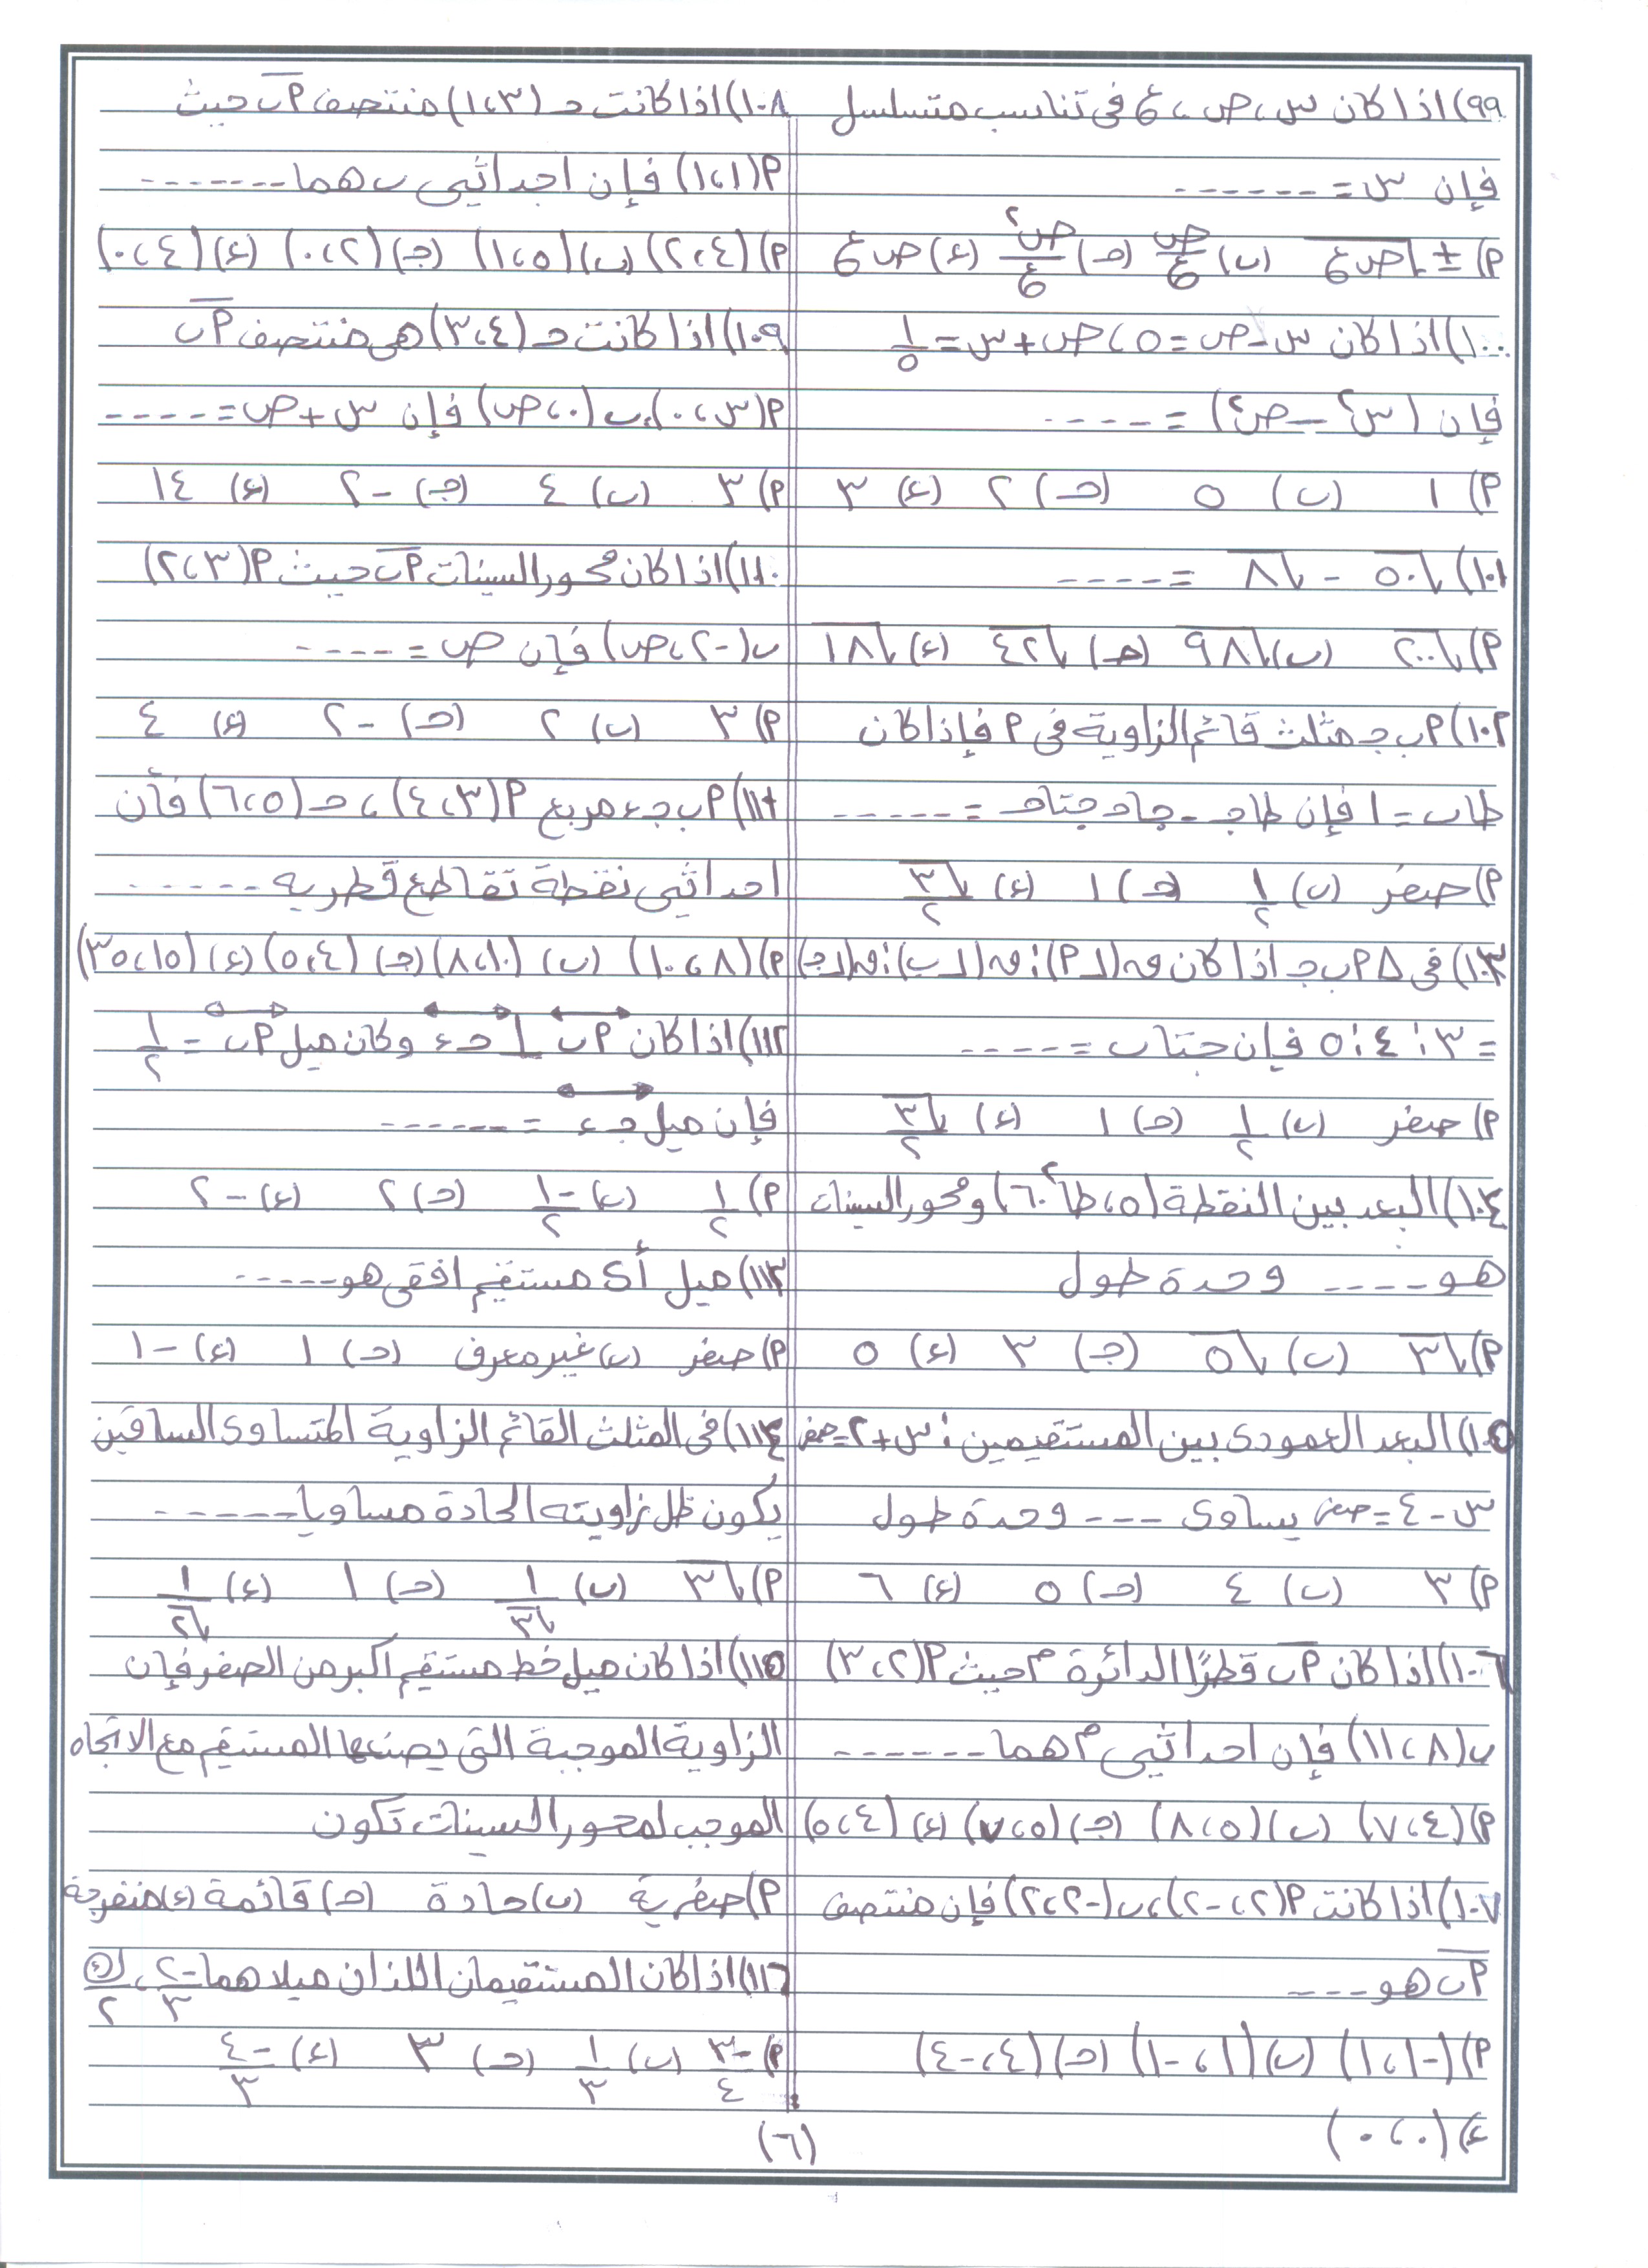 ٩٩) اذا كان س، ص، ع فى تناسب متسلسل
فإن س = ------
أ) ± √ص ع (ب) ص/ع (حـ) ص٢/ع (ء) ص ع
١٠٠) اذا كان س - ص = ٥ ، ص + س = ١/٥
فإن (س٢ - ص٢) = ----
أ) ١ (ب) ٥ (حـ) ٢ (ء) ٣
١٠١) √٥٠ - √٨ = -----
أ) √٢٠٠ (ب) √٩٨ (حـ) √٤٢ (ء) √١٨
١٠٢) أ ب جـ مثلث قائم الزاوية فى أ فإذا كان
طا ب = ١ فإن طا جـ - جا حـ جتا حـ = ------
أ) صفر (ب) ١/٢ (حـ) ١ (ء) √٣/٢
١٠٣) فى Δ أ ب جـ اذا كان ق(∠أ) : ق(∠ب) : ق(∠جـ)
= ٣ : ٤ : ٥ فإن جتا ب = -----
أ) صفر (ب) ١/٢ (حـ) ١ (ء) √٣/٢
١٠٤) البعد بين النقطة (٥، طا٢ ٦٠°) ومحور السينات
هو ---- وحدة طول
أ) √٣ (ب) √٥ (جـ) ٣ (ء) ٥
١٠٥) البعد العمودى بين المستقيمين : س + ٢ = صفر
س - ٤ = صفر يساوى --- وحدة طول
أ) ٣ (ب) ٤ (حـ) ٥ (ء) ٦
١٠٦) اذا كان أب قطرًا الدائرة م حيث أ(٢، ٣)
ب(٨، ١١) فإن احداثيى م هما -------
أ) (٤، ٧) (ب) (٥، ٨) (جـ) (٥، ٧) (ء) (٤، ٥)
١٠٧) اذا كانت أ(٢، -٢)، ب(-٢، ٢) فإن منتصف
أب هو ----
أ) (-١، ١) (ب) (١، -١) (حـ) (٤، -٤)
ء) (٠، ٠)
١٠٨) اذا كانت حـ (٣، ١) منتصف أب حيث
أ(١، ١) فإن احداثيى ب هما -------
أ) (٤، ٢) (ب) (٥، ١) (جـ) (٢، ٠) (ء) (٤، ٠)
١٠٩) اذا كانت حـ (٤، ٣) هى منتصف أب
أ(س، ٠)، ب(٠، ص) فإن س + ص = ----
أ) ٣ (ب) ٤ (جـ) -٢ (ء) ١٤
١١٠) اذا كان محور السينات أب حيث أ(٣، ٢)
ب(-٢، ص) فإن ص = ----
أ) ٣ (ب) ٢ (حـ) -٢ (ء) ٤
١١١) أ ب جـ ء مربع أ(٣، ٤)، حـ(٥، ٦) فأن
احداثيى نقطة تقاطع قطريه ------
أ) (٨، ١٠) (ب) (١٠، ٨) (جـ) (٤، ٥) (ء) (١٥، ٣٥)
١١٢) اذا كان أب ⊥ حـ ء وكان ميل أب = ١/٢
فإن ميل جـ ء = ------
أ) ١/٢ (ب) -١/٢ (حـ) ٢ (ء) -٢
١١٣) ميل أى مستقيم افقى هو -----
أ) صفر (ب) غير معرف (حـ) ١ (ء) -١
١١٤) فى المثلث القائم الزاوية المتساوى الساقين
يكون ظل زاويته الحادة مساويا ------
أ) √٣ (ب) ١/√٣ (حـ) ١ (ء) ١/√٢
١١٥) اذا كان ميل خط مستقيم اكبر من الصفر فإن
الزاوية الموجبة التى يصنعها المستقيم مع الاتجاه
الموجب لمحور السينات تكون
أ) صفرية (ب) حادة (حـ) قائمة (ء) منفرجة
١١٦) اذا كان المستقيمان اللذان ميلاهما -٢/٣ ، ك/٢
أ) -٣/٤ (ب) ١/٣ (حـ) ٣ (ء) -٤/٣
(٦)